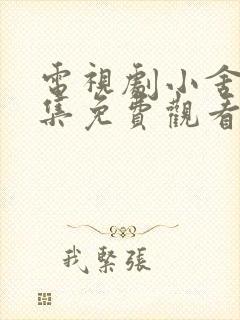 電視劇小舍
集免費觀看
我緊張